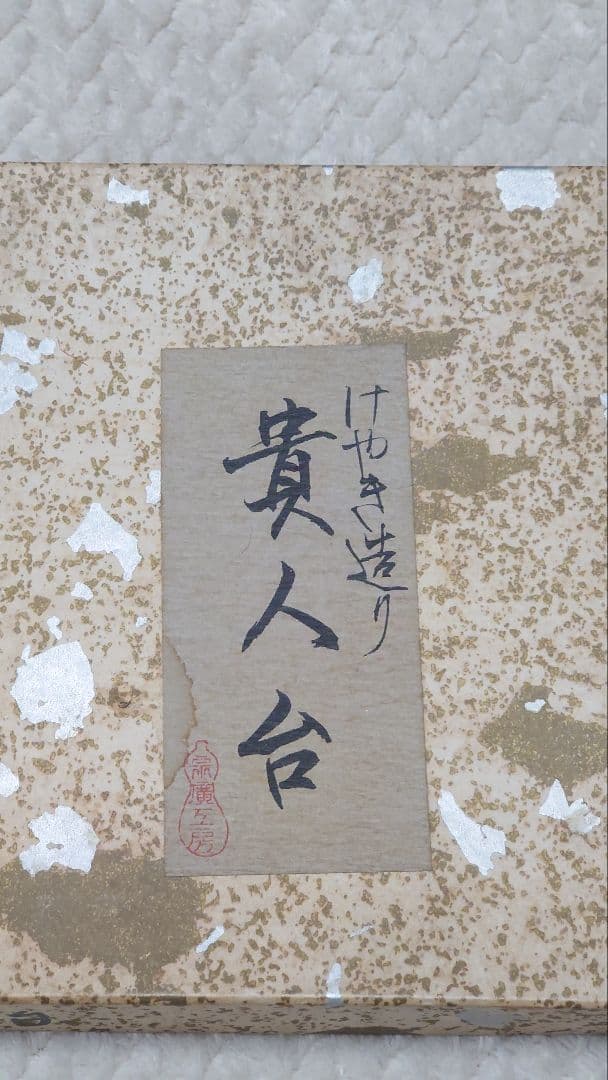 けやき造り
貴人台
宗廣工房